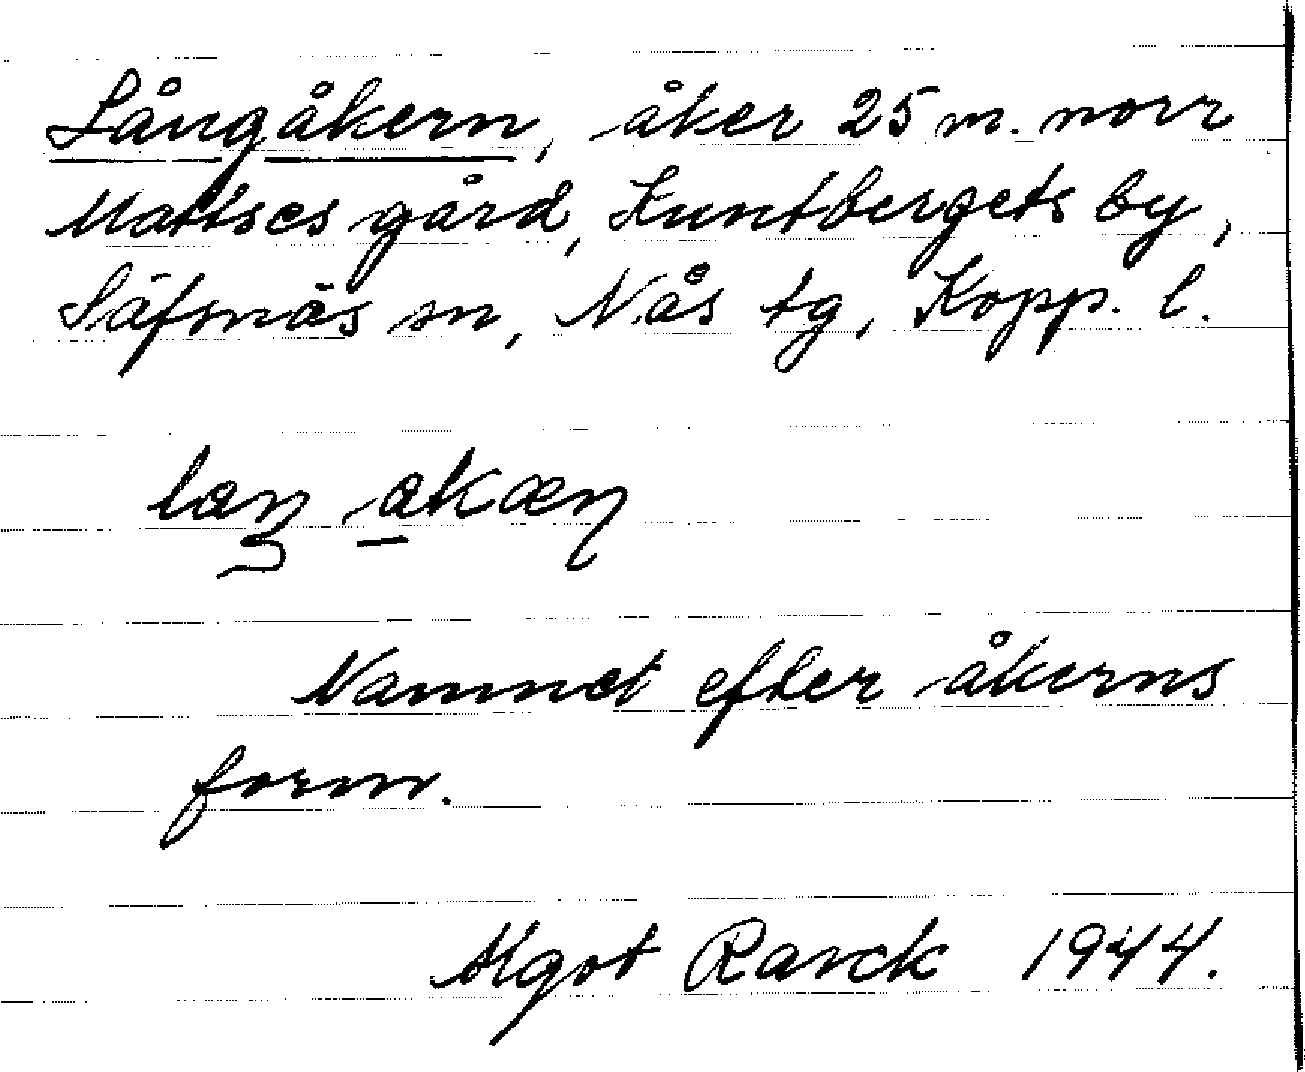 Långåkern, åker 25 m. norr
Mattses gård, Luntbergets by,
Säfsnäs sn, Nås tg, Kopp. l.
laŋ akæn
Namnet efter åkerns
form.
Mgot Rarck 1944.